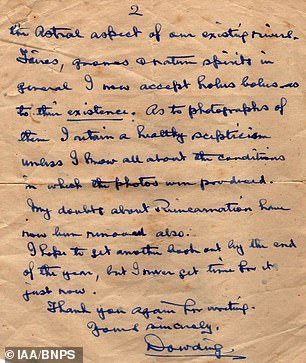 2
the Astral aspect of our existing rivers.
Fairies, gnomes & nature spirits in
general I now accept holus bolus as
to their existence. As to photographs of
them I retain a healthy scepticism
unless I know all about the conditions
in which the photos were produced.
My doubts about Reincarnation have
now been removed also.
I hope to get another book out by the end
of the year, but I never get time for it
just now.
Thank you again for writing.
Yours sincerely,
Dowding.
© IAA/BNPS